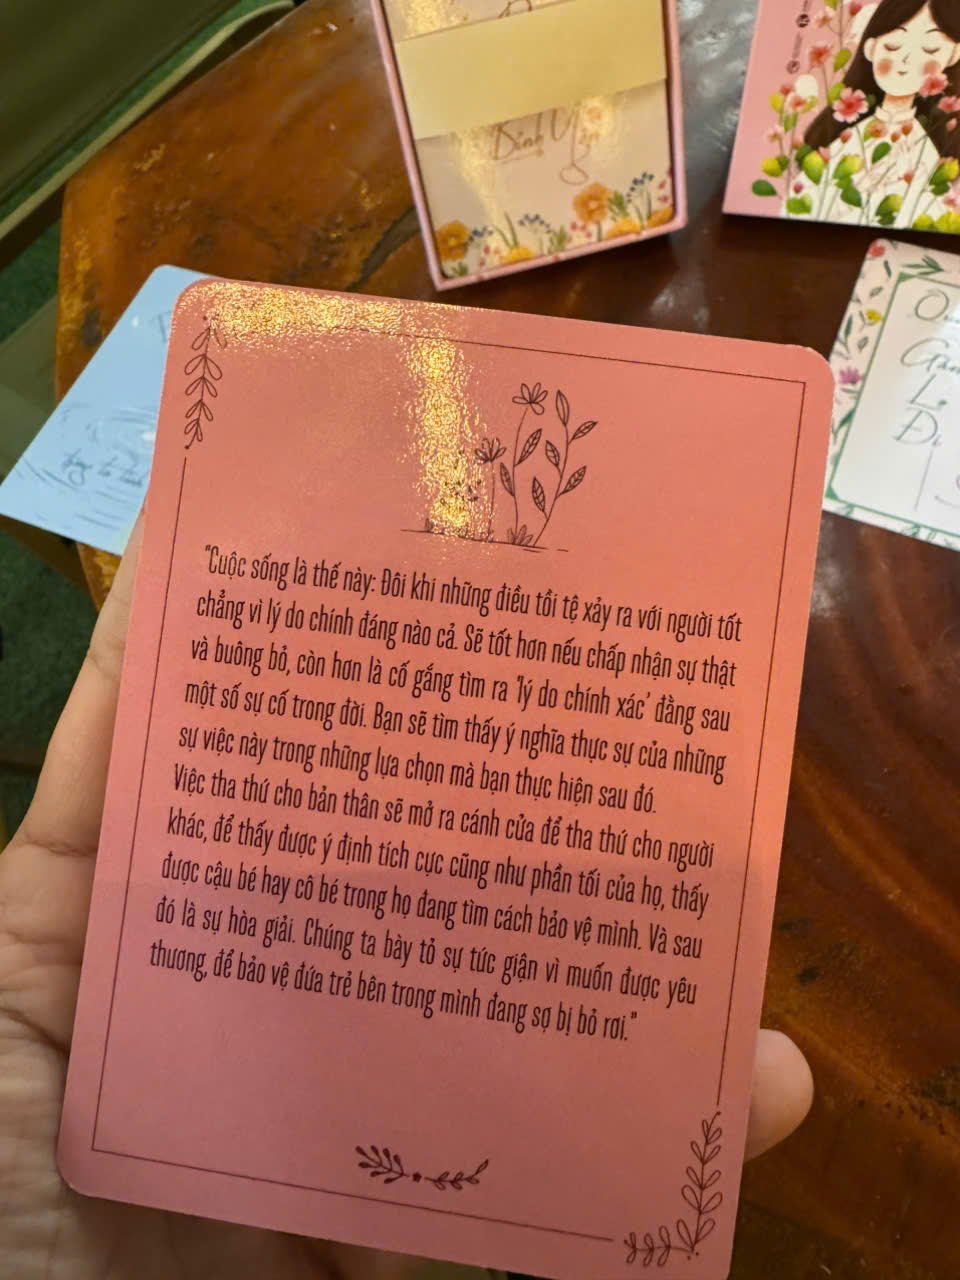 Bình Yên
"Cuộc sống là thế này: Đôi khi những điều tồi tệ xảy ra với người tốt
chẳng vì lý do chính đáng nào cả. Sẽ tốt hơn nếu chấp nhận sự thật
và buông bỏ, còn hơn là cố gắng tìm ra 'lý do chính xác' đằng sau
một số sự cố trong đời. Bạn sẽ tìm thấy ý nghĩa thực sự của những
sự việc này trong những lựa chọn mà bạn thực hiện sau đó.
Việc tha thứ cho bản thân sẽ mở ra cánh cửa để tha thứ cho người
khác, để thấy được ý định tích cực cũng như phần tối của họ, thấy
được cậu bé hay cô bé trong họ đang tìm cách bảo vệ mình. Và sau
đó là sự hòa giải. Chúng ta bày tỏ sự tức giận vì muốn được yêu
thương, để bảo vệ đứa trẻ bên trong mình đang sợ bị bỏ rơi."